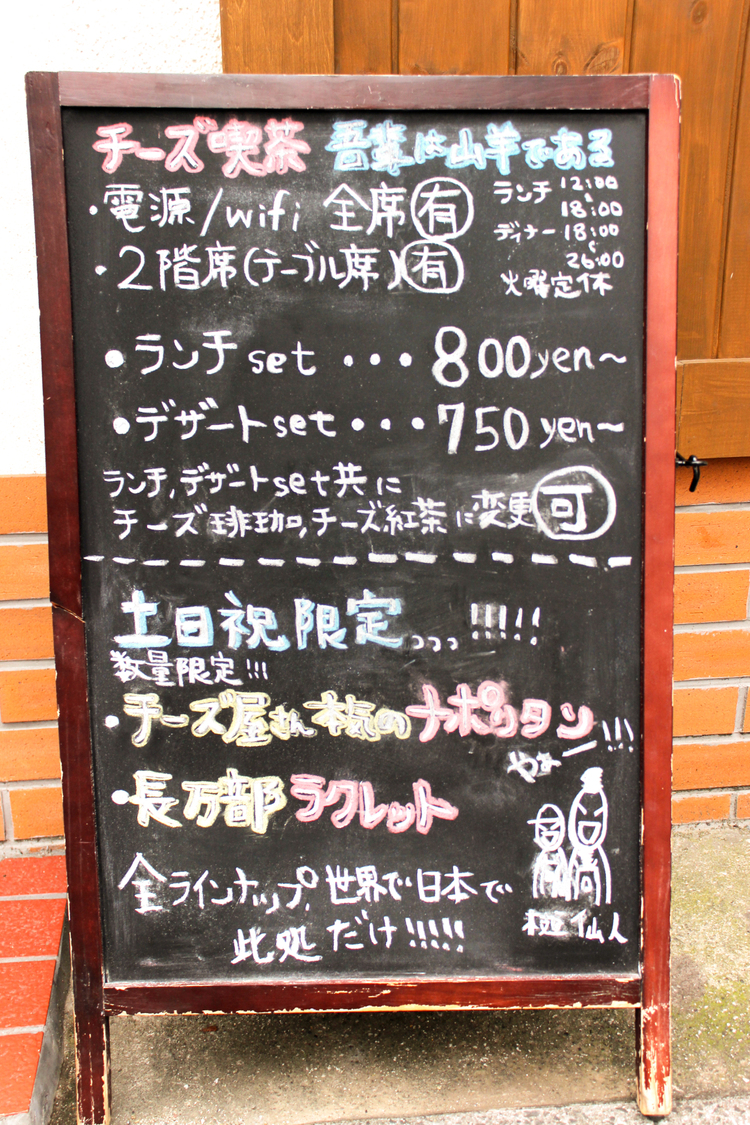 チーズ喫茶 吾輩は山羊である
・電源/wifi 全席有
・2階席(テーブル席)有
ランチ 12:00
〜
18:00
ディナー 18:00
〜
26:00
火曜定休
●ランチset・・・800yen〜
●デザートset・・・750yen〜
ランチ,デザートset共に
チーズ珈琲,チーズ紅茶に変更可
土日祝限定。。。!!!!!
数量限定!!!
・チーズ屋さん本気のナポリタン
●長万部ラクレット
やぁー!!!
仙人
全ラインナップ,世界で日本で
此処だけ!!!!!